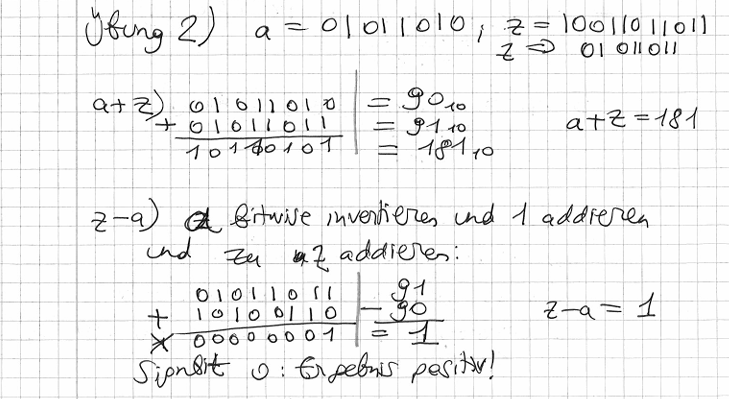 Übung 2) a = 01011010 ; z = 10011011011
z => 01011011
a+z) 01011010 = 90₁₀
+ 01011011 = 91₁₀ a+z = 181
10110101 = 181₁₀
z-a) a bitwise invertieren und 1 addieren
und zu z addieren:
01011011 91
+ 10100110 - 90 z-a = 1
00000001 = 1
Signbit 0: Ergebnis positiv!